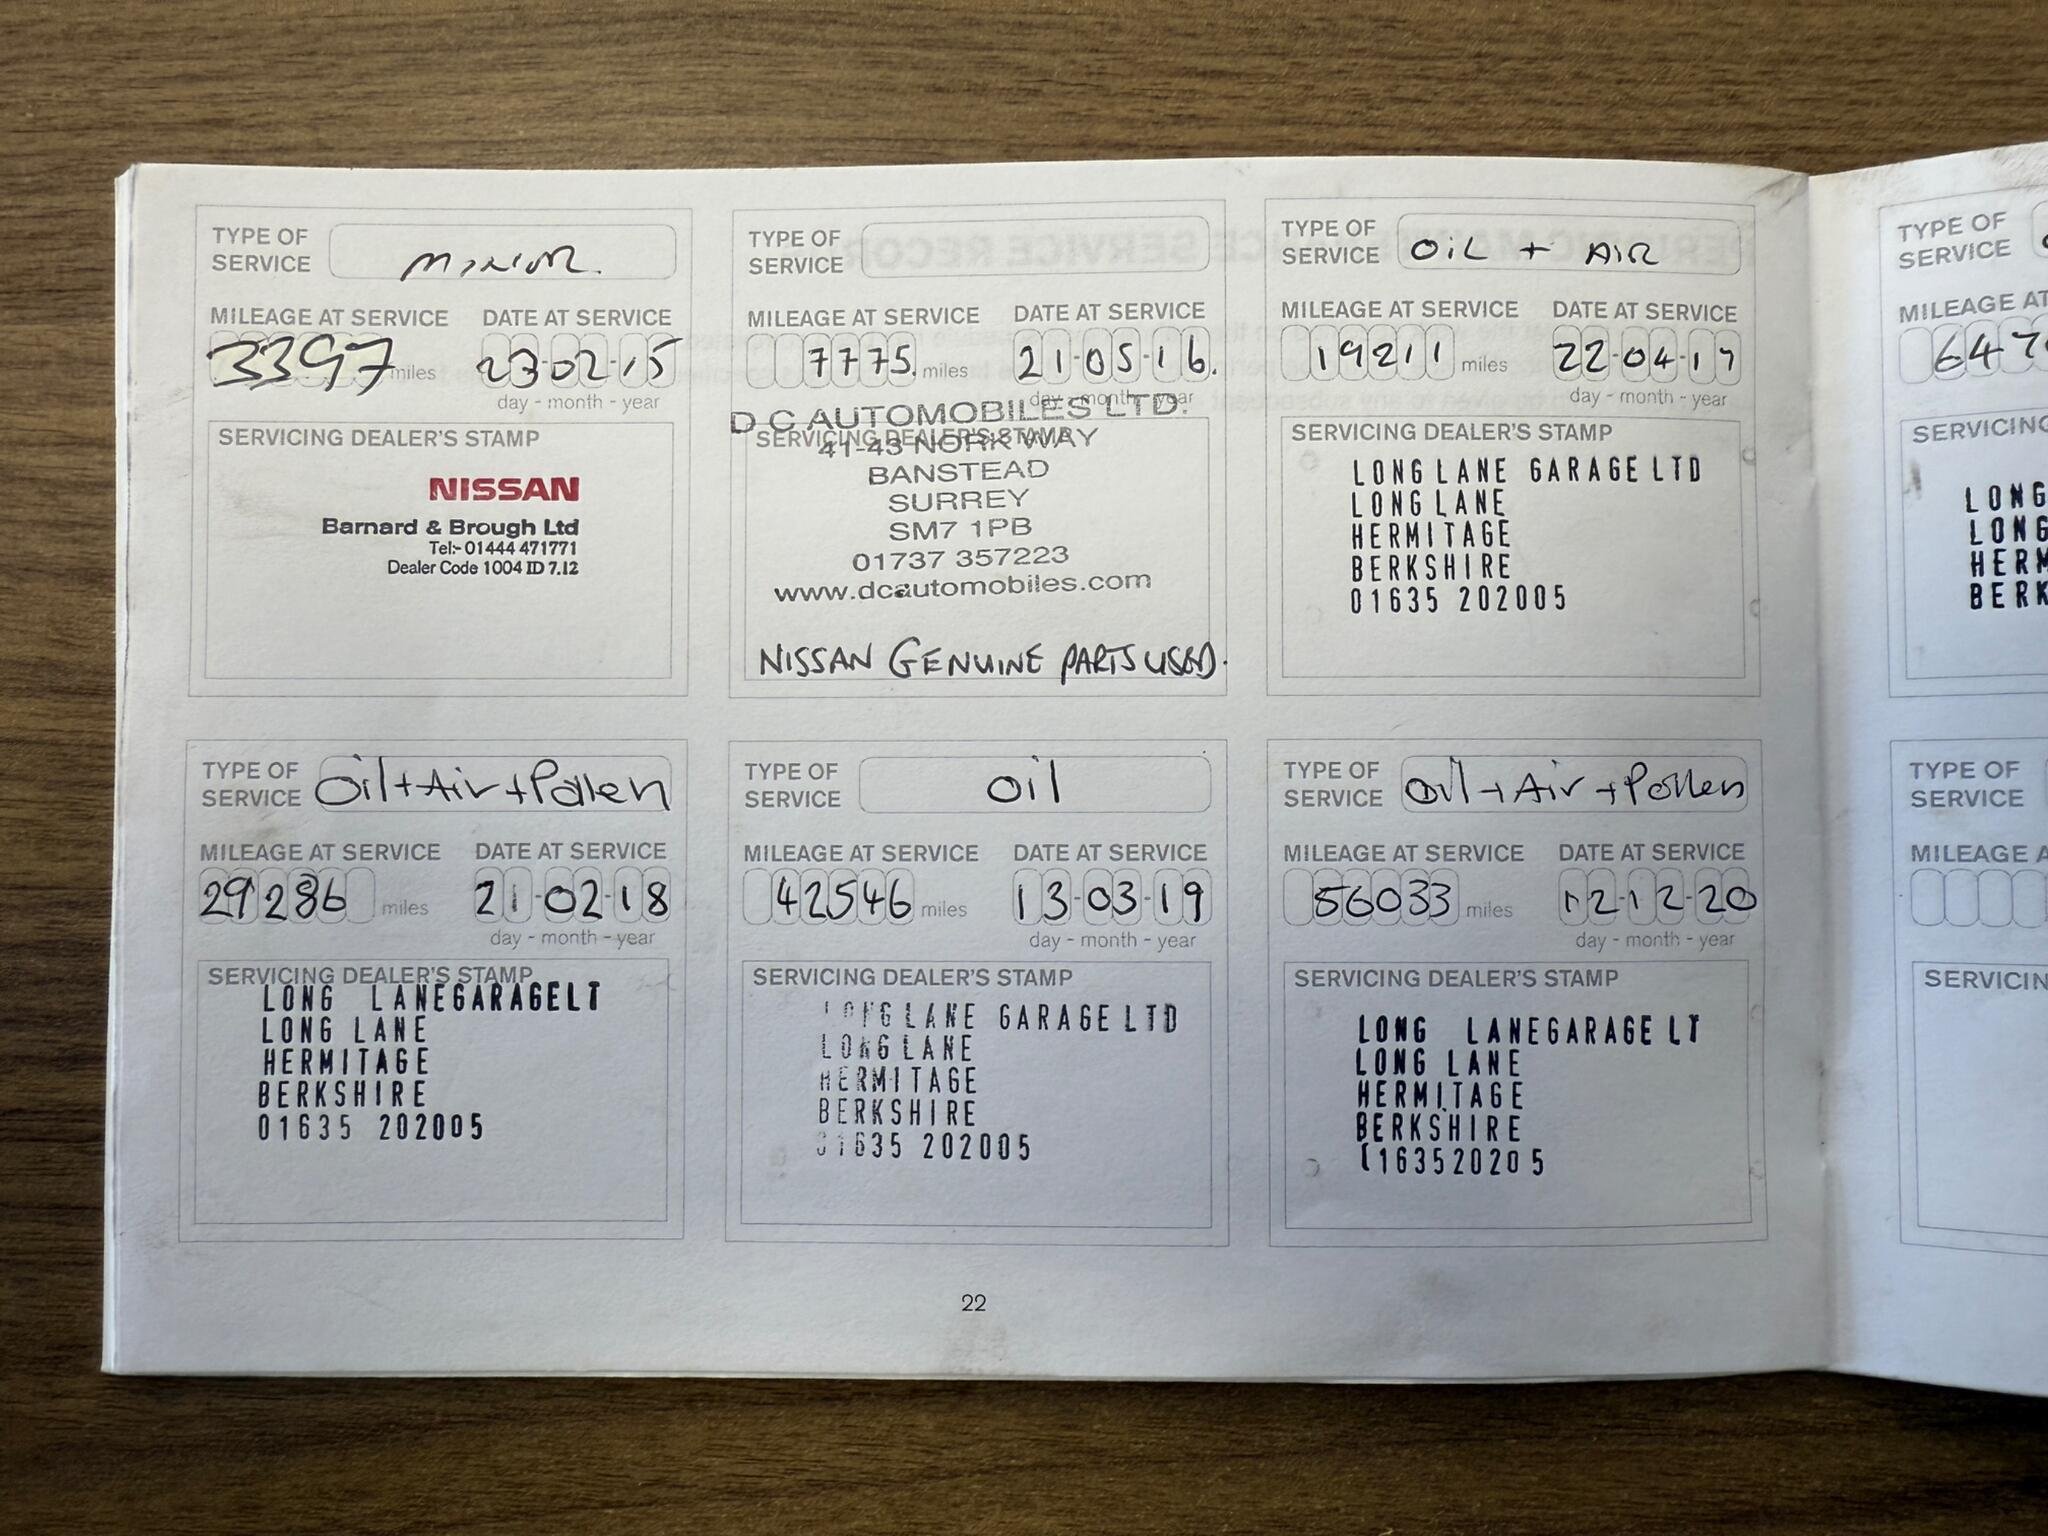 TYPE OF SERVICE MINOR.
MILEAGE AT SERVICE DATE AT SERVICE
3397 miles 23 02 15
day - month - year
SERVICING DEALER'S STAMP
NISSAN
Barnard & Brough Ltd
Tel:- 01444 471771
Dealer Code 1004 ID 7.12
TYPE OF SERVICE
MILEAGE AT SERVICE DATE AT SERVICE
7775. miles 21-05-16.
day - month - year
SERVICING DEALER'S STAMP
D C AUTOMOBILES LTD.
41-43 NORK WAY
BANSTEAD
SURREY
SM7 1PB
01737 357223
www.dcautomobiles.com
NISSAN GENUINE PARTS USED.
TYPE OF SERVICE OIL + AIR
MILEAGE AT SERVICE DATE AT SERVICE
19211 miles 22-04-17
day - month - year
SERVICING DEALER'S STAMP
LONG LANE GARAGE LTD
LONG LANE
HERMITAGE
BERKSHIRE
01635 202005
TYPE OF SERVICE Oil+Air+Pollen
MILEAGE AT SERVICE DATE AT SERVICE
29286 miles 21-02-18
day - month - year
SERVICING DEALER'S STAMP
LONG LANEGARAGELT
LONG LANE
HERMITAGE
BERKSHIRE
01635 202005
TYPE OF SERVICE Oil
MILEAGE AT SERVICE DATE AT SERVICE
42546 miles 13-03-19
day - month - year
SERVICING DEALER'S STAMP
LONG LANE GARAGE LTD
LONG LANE
HERMITAGE
BERKSHIRE
01635 202005
TYPE OF SERVICE Oil+Air+Pollen
MILEAGE AT SERVICE DATE AT SERVICE
56033 miles 12-12-20
day - month - year
SERVICING DEALER'S STAMP
LONG LANEGARAGE LT
LONG LANE
HERMITAGE
BERKSHIRE
(163520205
22
TYPE OF SERVICE
MILEAGE AT
647
SERVICING
LONG
LONG
HERM
BERK
TYPE OF SERVICE
MILEAGE A
SERVICIN